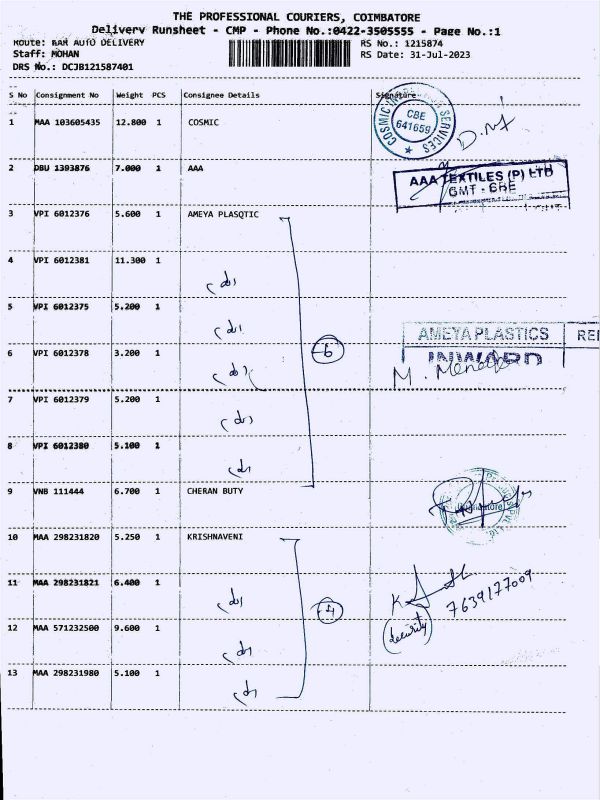 THE PROFESSIONAL COURIERS, COIMBATORE
Delivery Runsheet - CMP - Phone No.:0422-3505555 - Page No.:1
Route: BAM AUTO DELIVERY
RS No.: 1215874
Staff: MOHAN
RS Date: 31-Jul-2023
DRS No.: DCJB121587401
S No Consignment No Weight PCS Consignee Details Signature
1 MAA 103605435 12.800 1 COSMIC
CBE
641659
2 DBU 1393876 7.000 1 AAA
AAA TEXTILES (P) LTD
GMT - CBE
3 VPI 6012376 5.600 1 AMEYA PLASQTIC
4 VPI 6012381 11.300 1
5 VPI 6012375 5.200 1
AMEYA PLASTICS
INWARD
6 VPI 6012378 3.200 1
6
7 VPI 6012379 5.200 1
8 VPI 6012380 5.100 1
9 VNB 111444 6.700 1 CHERAN BUTY
10 MAA 298231820 5.250 1 KRISHNAVENI
11 MAA 298231821 6.400 1
4
7639177009
(Security)
12 MAA 571232500 9.600 1
13 MAA 298231980 5.100 1